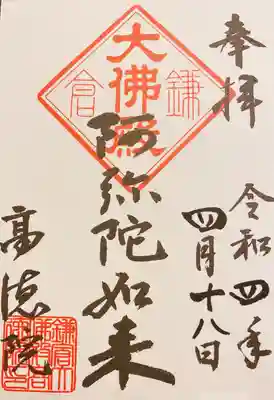 奉拝
令和四年
四月十八日
大佛殿
鎌倉
阿弥陀如来
高徳院